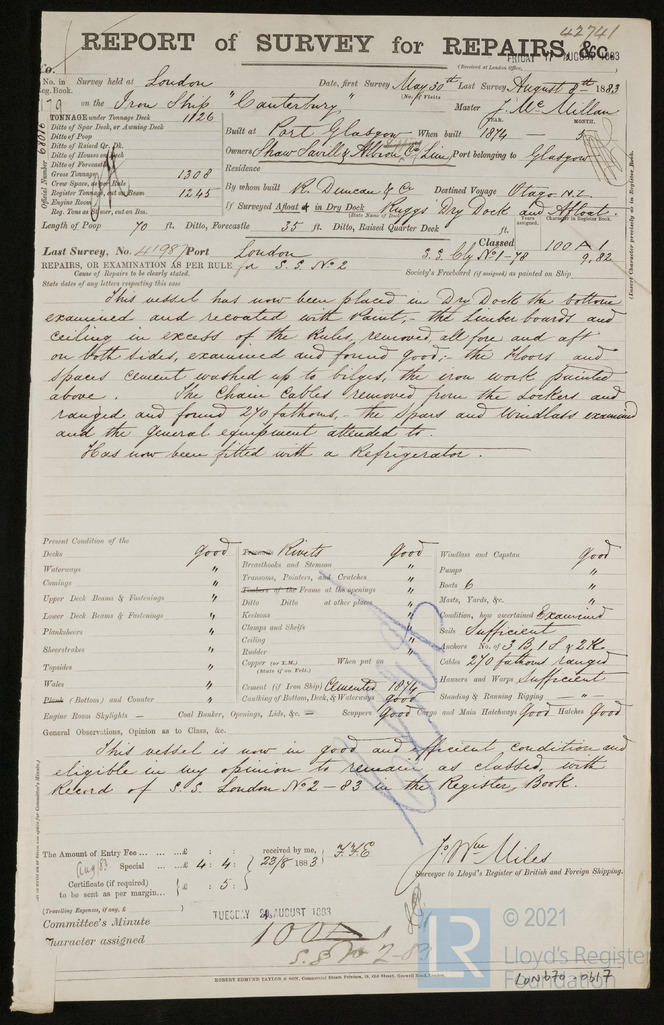 42741
REPORT of SURVEY for REPAIRS, &c.
(Received at London Office, FRIDAY 17 AUGUST 1883
No. in Reg. Book. Survey held at London Date, first Survey May 30th Last Survey August 8th 1883
(No. of Visits
179 on the Iron Ship "Canterbury," Master J. McMillan
TONNAGE under Tonnage Deck 1126
Ditto of Spar Deck, or Awning Deck
Ditto of Poop
Ditto of Raised Qr. Dk.
Ditto of Houses on Deck
Ditto of Forecastle
Gross Tonnage 1308
Crew Space, as per Rule
Register Tonnage, cut on Beam 1245
Engine Room
Reg. Tons as Steamer, cut on Bm.
Official Number 68076
Built at Port Glasgow When built 1874 — 5
YEAR. MONTH.
Owners Shaw Savill & Albion Co Lim Port belonging to Glasgow
Residence
By whom built R. Duncan & Co Destined Voyage Otago N.Z.
If Surveyed Afloat & in Dry Dock Ruggs' Dry Dock and Afloat.
(State Name of Dock)
Length of Poop 70 ft. Ditto, Forecastle 35 ft. Ditto, Raised Quarter Deck ft.
Years assigned. Character in Register Book.
(Insert Character precisely as in Register Book.
Last Survey, No. 41987 Port London Classed 100 A 1
S.S. Cly No 1-78 9,82
REPAIRS, OR EXAMINATION AS PER RULE for S.S. No 2
Cause of Repairs to be clearly stated. Society's Freeboard (if assigned) as painted on Ship
State dates of any letters respecting this case
This vessel has now been placed in Dry Dock the bottom
examined and recoated with Paint,- the Limber boards and
ceiling in excess of the Rules, removed all fore and aft
on both sides, examined and found good;- the Floors and
spaces cement washed up to bilges, the iron work painted
above. The Chain Cables removed from the Lockers and
ranged and found 270 fathoms,- the Spars and Windlass examined
and the general equipment attended to.
Has now been fitted with a Refrigerator.
Present Condition of the
Decks good
Waterways "
Comings "
Upper Deck Beams & Fastenings "
Lower Deck Beams & Fastenings "
Planksheers "
Sheerstrakes "
Topsides "
Wales "
Plank (Bottom) and Counter "
Engine Room Skylights —
Treenails Rivets good
Breasthooks and Stemson "
Transoms, Pointers, and Crutches "
Timbers of the Frame at the openings "
Ditto Ditto at other places "
Keelsons "
Clamps and Shelfs "
Ceiling "
Rudder "
Copper (or Y.M.) When put on
(State if on Felt.)
Cement (if Iron Ship) Cemented 1874
Caulking of Bottom, Deck, & Waterways good
Coal Bunker, Openings, Lids, &c. — Scuppers Good Cargo and Main Hatchways Good Hatches Good
Windlass and Capstan good
Pumps "
Boats 6 "
Masts, Yards, &c. "
Condition, how ascertained Examined
Sails Sufficient
Anchors No. of 3 B, 1 S. & 2 K
Cables 270 fathoms ranged
Hawsers and Warps Sufficient
Standing & Running Rigging — " —
General Observations, Opinion as to Class, &c.
This vessel is now in good and efficient condition and
eligible in my opinion to remain as classed, with
Record of S.S. London No 2 - 83 in the Register, Book.
The Amount of Entry Fee ... £ : : received by me, F.F.E
Aug 83 Special ... £ 4 : 4 : 23/8 1883
Certificate (if required) £ : 5 :
to be sent as per margin...
(Travelling Expenses, if any, £ )
Jo. Wm Miles
Surveyor to Lloyd's Register of British and Foreign Shipping.
Committee's Minute TUESDAY 21 AUGUST 1883
Character assigned 100 A 1
S.S No 2-83
ROBERT EDMUND TAYLOR & SON, Commercial Steam Printers, 19, Old Street, Goswell Road, London.
LR © 2021
Lloyd's Register
Foundation
LON670-0617